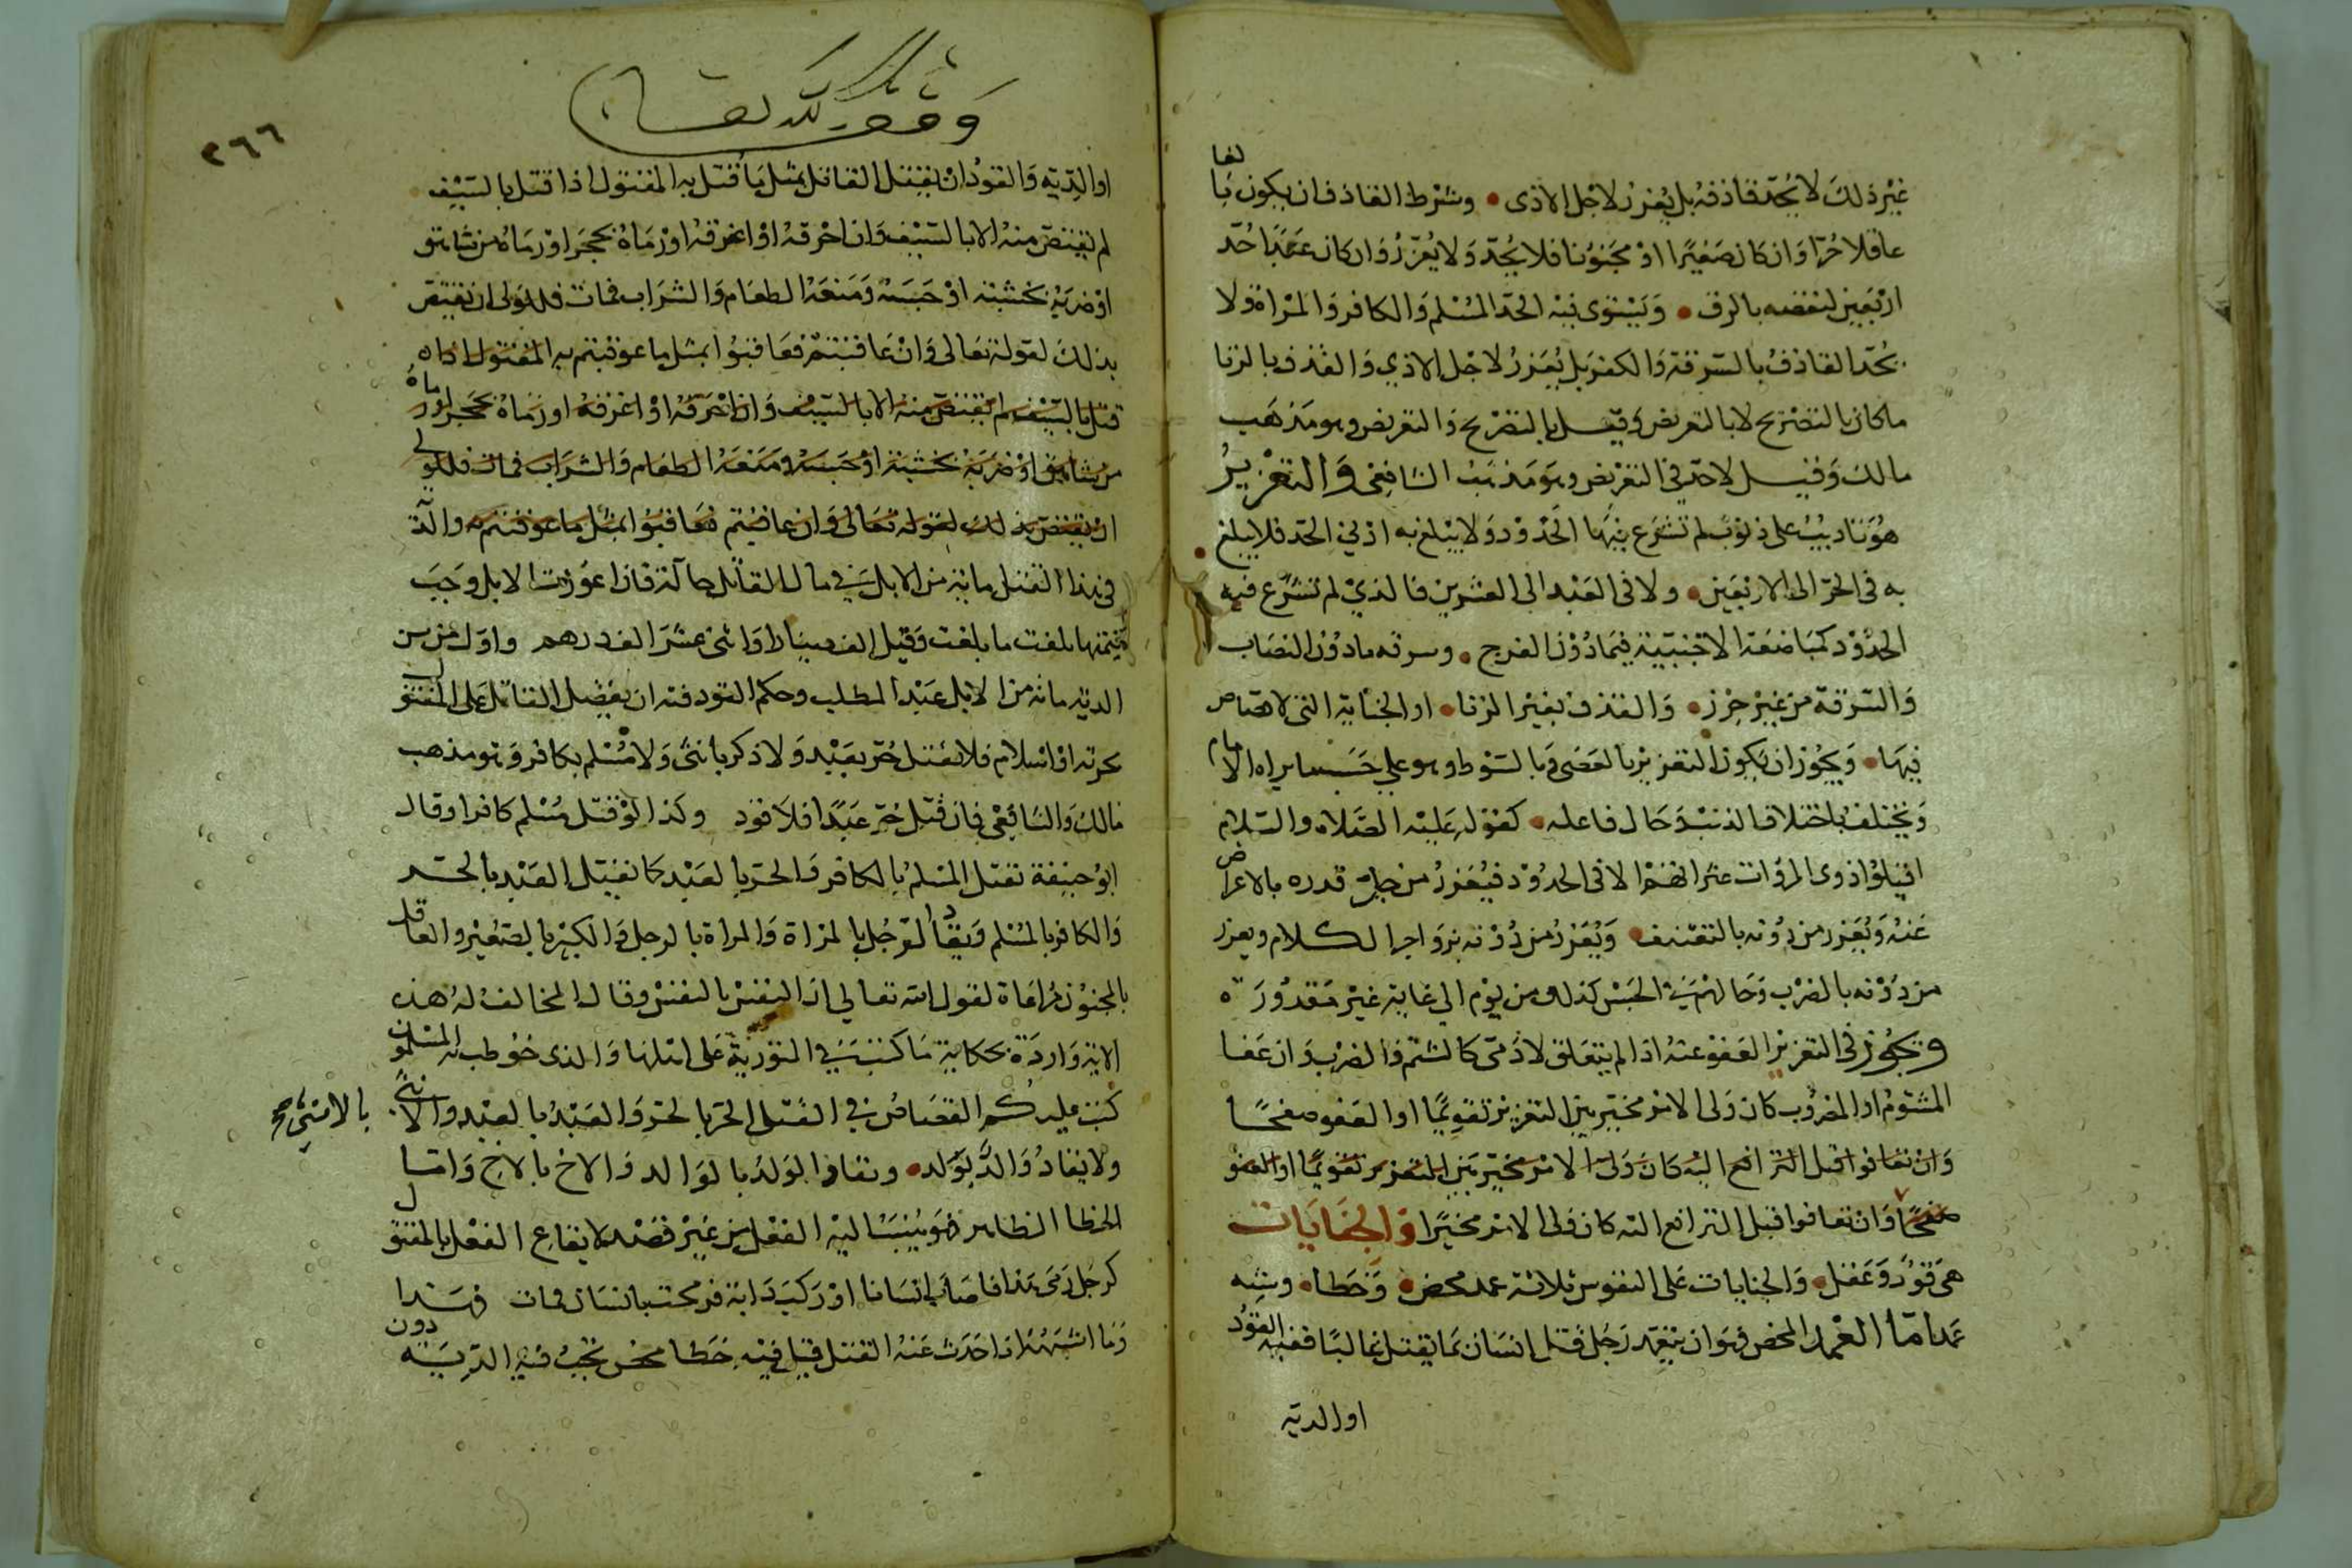 غير ذلك لا يحد قاذفه بل يعزر لاجل الاذى • وشرط القاذف ان يكون بالغا
عاقلا حرا وان كان صغيرا او مجنونا فلا يحد ولا يعزر وان كان عبدا حد
اربعين لنقصه بالرق • ويستوى فيه الحد المسلم والكافر والمراة ولا
يحد القاذف بالسرقة والكفر بل يعزر لاجل الاذي والقذف بالزنا
ما كان بالتصريح لا بالتعريض وقيل بالتصريح والتعريض وهو مذهب
مالك وقيل لا حد في التعريض وهو مذهب الشافعى والتعزير
هو تاديب على ذنوب لم تشرع فيها الحدود ولا يبلغ به ادني الحد فلا يبلغ
به فى الحر الى الاربعين • ولا فى العبد الى العشرين فالذي لم تشرع فيه
الحدود كمباضعة الاجنبية فيما دون الفرج • وسرقه مادون النصاب
والسرقة من غير حرز • والقذف بغير الزنا • او الجناية التى لا قصاص
فيها • ويجوز ان يكون التعزير بالعصى وبالسوط وهو علي حسب ما يراه الامام
ويختلف باختلاف الذنب وحال فاعله • كقوله عليه الصلاه والسلام
اقيلوا ذوى المروات عثراتهم الا فى الحدود فيعزر من جل قدره بالاعراض
عنه ويعزر من دونه بالتعنيف • ويعزر من دونه بزواجر الكلام ويعزر
من دونه بالضرب وحالهم في الحبس كذلك من يوم الي غاية غير مقدورة
ويجوز فى التعزير العفو عنه اذا لم يتعلق لادمى كالشتم والضرب وان عفا
المشتوم او المضروب كان ولى الامر مخير بين التعزير تقويما او العفو صفحا
وان تعافوا قبل الترافع اليه كان ولى الامر مخير بين التعزير تقويما او العفو
صفحا وان تعافوا قبل الترافع اليه كان ولى الامر مخيرا والجنايات
هى قود وعقل • والجنايات على النفوس ثلاثة عمد محض • وخطا • وشبه
عمد اما العمد المحض فهو ان يتعمد رجل قتل انسان بما يقتل غالبا ففيه القود
او الدية
وقف لله تعالى
٢٦٦
او الدية والقود ان يقتل القاتل بمثل ما قتل به المقتول اذا قتل بالسيف
لم يقتص منه الا بالسيف وان احرقه او اغرقه او رماه بحجر او رماه من شاهق
او ضربه بخشبة او حبسه ومنعه الطعام والشراب فمات فللولى ان يقتص
بذلك لقوله تعالى وان عاقبتم فعاقبوا بمثل ما عوقبتم به المقتول اذا
قتل بالسيف لم يقتص منه الا بالسيف وان احرقه او اغرقه او رماه بحجر او رماه
من شاهق او ضربه بخشبة او حبسه ومنعه الطعام والشراب فمات فللولى
ان يقتص بذلك لقوله تعالى وان عاقبتم فعاقبوا بمثل ما عوقبتم به والدية
فى هذا القتل ماية من الابل في مال القاتل حالة فاذا عوزت الابل وجب
قيمتها بلغت ما بلغت وقيل الف دينار او اثنى عشر الف درهم واول من سن
الدية مائة من الابل عبد المطلب وحكم القود فيه ان يفضل القاتل على المقتول
بحرية او اسلام فلا يقتل حر بعبد ولا ذكر بانثى ولا مسلم بكافر وهو مذهب
مالك والشافعى فان قتل حر عبدا فلا قود وكذا لو قتل مسلم كافرا وقال
ابو حنيفة تقتل المسلم بالكافر والحر بالعبد كما نقتل العبد بالحر
والكافر بالمسلم ويقاد الرجل بالمراة والمراة بالرجل والكبير بالصغير والعاقل
بالمجنون مراعاة لقول الله تعالي ان النفس بالنفس وقال المخالف له هذه
الاية واردة بحكاية ما كتب في التورية على اهلها والذى خوطب به المسلمون
كتب عليكم القصاص في القتلى الحر بالحر والعبد بالعبد والانثى
بالانثى صح
ولا يقاد والد بولد • ويقاد الولد بالوالد والاخ بالاخ واما
الخطا الظاهر فهو ينسب اليه الفعل من غير قصد لايقاع الفعل بالمقتول
كرجل رمى هدفا فاصاب انسانا او ركب دابة فرمحت بانسان فمات فهذا
وما اشبهه اذا حدث عنه القتل قيل فيه خطا محض تجب فيه الدية دون